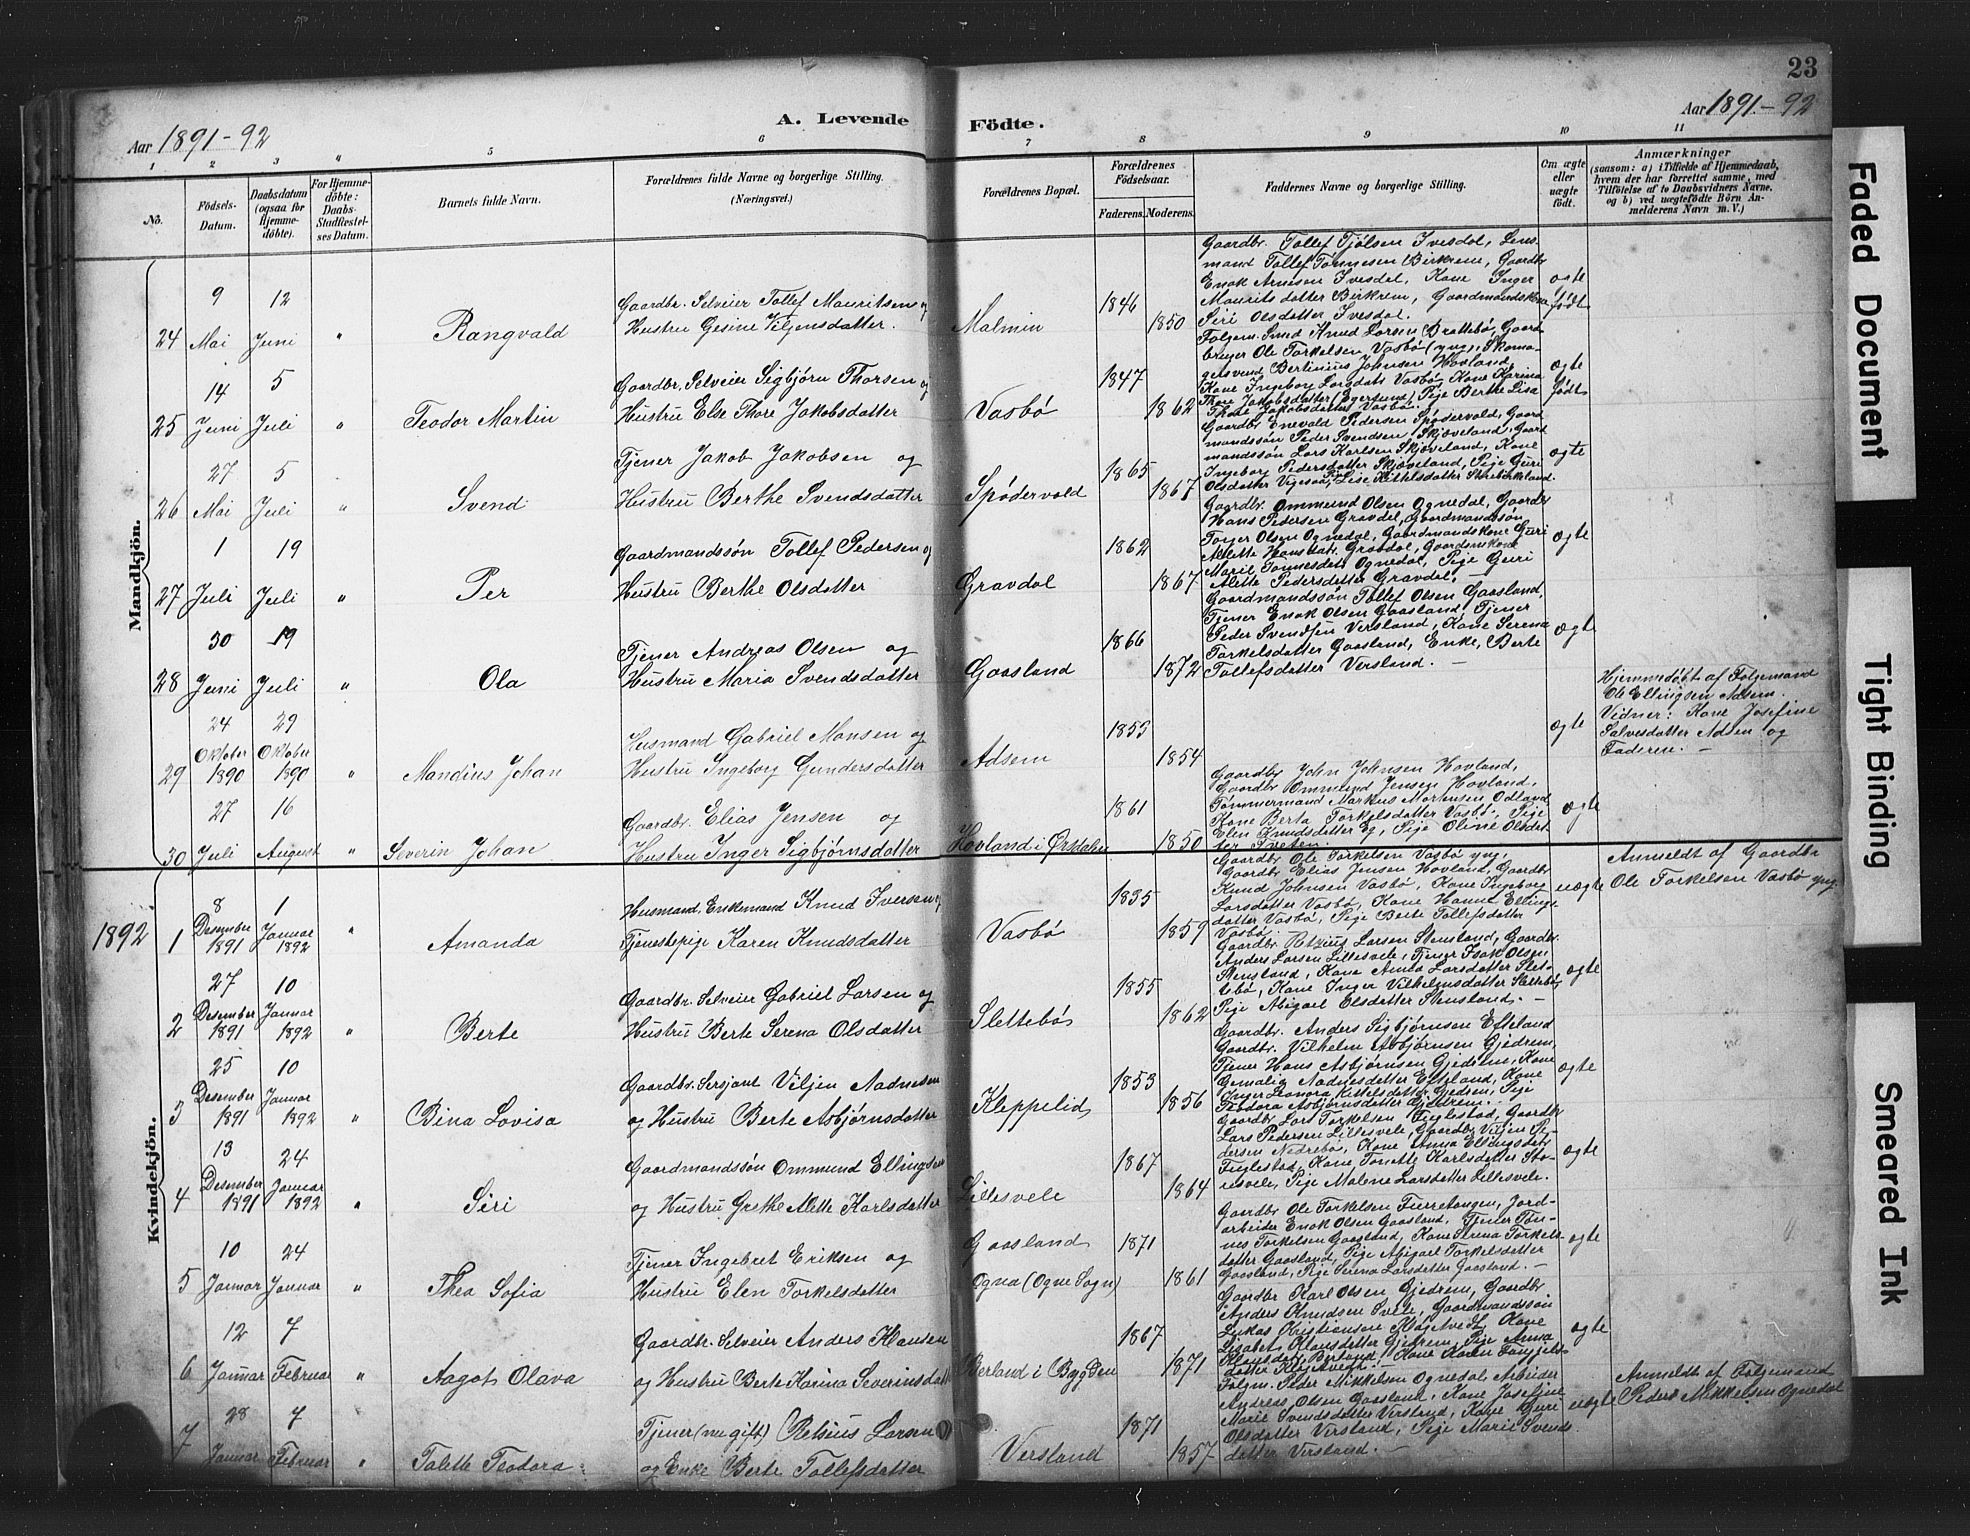 23
Aar 1891-92
A. Levende Födte.
Aar 1891-92
1 2 3 „ 5 6 7 8 9 10 11
No.
Födsels-Datum.
Daabsdatum (ogsaa for Hjemme-döbte).
For Hjemme-döbte: Daabs-Stadfæstel-ses Datum.
Barnets fulde Navn.
Forældrenes fulde Navne og borgerlige Stilling.
(Næringsvei.)
Forældrenes Bopæl.
Forældrenes Födselsaar.
Faderens. Moderens.
Faddernes Navne og borgerlige Stilling.
Om ægte eller uægte födt.
Anmærkninger
(saasom: a) i Tilfælde af Hjemmedaab,
hvem der har forrettet samme, med
Tilföielse af to Daabsvidners Navne,
og b) ved uægtefödte Börn An-
melderens Navn m. V.)
Mandkjön.
24 9 Mai 12 Juni „ Rangvald
Gaardbr. Selveier Tollef Mauritsen og
Hustru Gesine Viljensdatter.
Malmin 1846 1850
Gaardbr. Tollef Tjølsen Ivesdal, Lens-
mand Tollef Tønnesen Birkrem, Gaardbr
Enok Arnesen Ivesdal, Kone Inger
Mauritsdatter Birkrem, Gaardmandskone
Siri Olsdatter Ivesdal.
ægte født
25 14 Juni 5 Juli „ Teodor Martin
Gaardbr. Selveier Sigbjørn Thorsen og
Hustru Else Thore Jakobsdatter
Vasbø 1847 1862
Folgem. Smd Knud Larsen Brattebø, Gaard-
bruger Ole Torkelsen Vasbø (yng), Skoma-
gersvend Bertinius Johnsen Hovland,
Kone Ingeborg Larsdatr Vasbø, Kone Karina
Thore Jakobsdatter (Egersund) Pige Berthe Lisa
Thore Jakobsdatter Vasbø.
ægte født
26 27 Mai 5 Juli „ Svend
Tjener Jakob Jakobsen og
Hustru Berthe Svendsdatter
Spødervold 1865 1867
Gaardbr Enevold Pedersen Spødervold, Gaard-
mandssøn Peder Svendsen Skjæveland, Gaard-
mandssøn Lars Karlsen Skjæveland, Kone
Ingeborg Pedersdatter Skjæveland, Pige Guri
Olsdatter Vigesaa, Pige Lise Kittelsdatter Storebirkland.
ægte
27 1 Juli 19 Juli „ Per
Gaardmandssøn Tollef Pedersen og
Hustru Berthe Olsdatter
Gravdal 1862 1867
Gaardbr Ommund Olsen Ognedal, Gaardbr
Hans Pedersen Gravdal, Gaardmandssøn
Torger Olsen Ognedal, Gaardmandskone Guri
Alette Hansdatr Gravdal, Gaardmskone
Marie Tønnesdatr Ognedal, Pige Guri
Alette Pedersdatter Gravdal. —
ægte
28 30 Juni 19 Juli „ Ola
Tjener Andreas Olsen og
Hustru Maria Svendsdatter
Gaasland 1866 1872
Gaardmandssøn Tollef Olsen Gaasland,
Tjener Enok Olsen Gaasland, Tjener
Peder Svendsen Versland, Kone Serena
Torkelsdatter Gaasland, Enke, Berte
Tollefsdatter Versland. —
ægte
29 24 Oktober 1890 29 Oktober 1890 „ Mandius Johan
Husmand Gabriel Monsen og
Hustru Ingeborg Gundersdatter
Adsem 1853 1854
ægte
Hjemmedøbt af Folgemand
Ole Ellingsen Adsem.
Vidner: Kone Josefine
Salvesdatter Adsem og
Faderen. —
30 27 Juli 16 August „ Severin Johan
Gaardbr. Elias Jensen og
Hustru Inger Sigbjørnsdatter
Hovland i Ørsdalen 1861 1850
Gaardbr John Johnsen Hovland,
Gaardbr Ommund Jensen Hovland,
Tømmermand Markus Mortensen Odland,
Kone Berta Torkelsdatter Vasbø, Pige
Elen Knudsdatter Eg, Pige Oline Olsdat-
ter Sveten.
ægte
1892
Kvindekjön.
1 8 Desember 1891 1 Januar 1892 „ Amanda
Husmand, Enkemand Knud Iversen og
Tjenestepige Karen Knudsdatter
Vasbø 1835 1859
Gaardbr Ole Torkelsen Vasbø yng,
Gaardbr Elias Jensen Hovland, Gaardbr
Knud Johnsen Vasbø, Kone Ingeborg
Larsdatter Vasbø, Kone Hanne Ellings-
datter Vasbø, Pige Berte Tollefsdatter
Vasbø.
uægte
Anmeldt af Gaardbr
Ole Torkelsen Vasbø yng.
2 27 Desember 1891 10 Januar 1892 „ Berte
Gaardbr. Selveier Gabriel Larsen og
Hustru Berte Serena Olsdatter
Slettebø 1855 1862
Gaardbr Retzius Larsen Stensland, Gaardbr.
Anders Larsen Lillesvele, Tjener Isak Olsen
Stensland, Kone Anna Larsdatter Slet-
tebø, Kone Inger Vilhelmsdatter Slettebø,
Pige Abigael Elsdatter Stensland. —
ægte
3 25 Desember 1891 10 Januar 1892 „ Bina Lovisa
Gaardbr. Sersjant Viljen Aadnesen
og Hustru Berte Asbjørnsdatter
Kleppelid 1853 1856
Gaardbr. Anders Sigbjørnsen Efteland
Gaardbr. Vilhelm Asbjørnsen Gjedrem,
Tjener Hans Asbjørnsen Gjedrem, Kone
Gemalie Aadnesdatter Efteland, Kone
Inger Leonora Kittelsdatter Gjedrem, Pige
Teodora Asbjørnsdatter Gjedrem. —
ægte
4 13 Desember 1891 24 Januar 1892 „ Siri
Gaardmandssøn Ommund Ellingsen
og Hustru Grethe Alette Karlsdatter
Lillesvele 1867 1864
Gaardbr Lars Torkelsen Fuglestad, Gaardbr
Lars Pedersen Lillesvele, Gaardbr Viljen Pe-
dersen Nedrebø, Kone Anna Ellingsdatr
Fuglestad, Kone Tonette Karlsdatter Sto-
resvele, Pige Malene Larsdatter Lillesvele.
ægte
5 10 Januar 24 Januar „ Thea Sofia
Tjener Ingebret Eriksen og
Hustru Elen Torkelsdatter
Gaasland
Ogna (Ogne Sogn) 1871 1861
Gaardbr Ole Torkelsen Fierretangen, Jord-
arbeider Enok Olsen Gaasland, Tjener Tøn-
nes Torkelsen Gaasland, Kone Serena Torkels-
datter Gaasland, Pige Abigael Torkelsdatter
Gaasland, Pige Serena Larsdatter Gaasland. —
ægte
6 12 Januar 7 Februar „ Aagot Olava
Gaardbr. Selveier Anders Hansen
og Hustru Berte Karina Severinsdatt
Berland i Bygden 1867 1871
Gaardbr Karl Olsen Gjedrem, Gaardbr
Anders Knudsen Svele, Gaardmandssøn
Lukas Kristiansen Kløgetvedt, Kone
Lisabet Klausdatter Gjedrem, Pige Anna
Hansdatr Berland, Kone Karen
datter Kløgetvedt. —
ægte
7 28 Januar 7 Februar „ Talette Teodora
Tjener (nu gift) Retsius Larsen
og Enke Berte Tollefsdatter
Versland 1871 1857
Folgm. Peder Mikkelsen Ognedal, Arbeider
Andreas Olsen Gaasland, Kone Josefine
Marie Svendsdatter Verstand, Kone Guri
Olsdatter Versland, Pige Marie Svends-
datter Versland. —
uægte
Anmeldt af Folgemand
Peder Mikkelsen Ognedal
Faded Document
Tight Binding
Smeared Ink